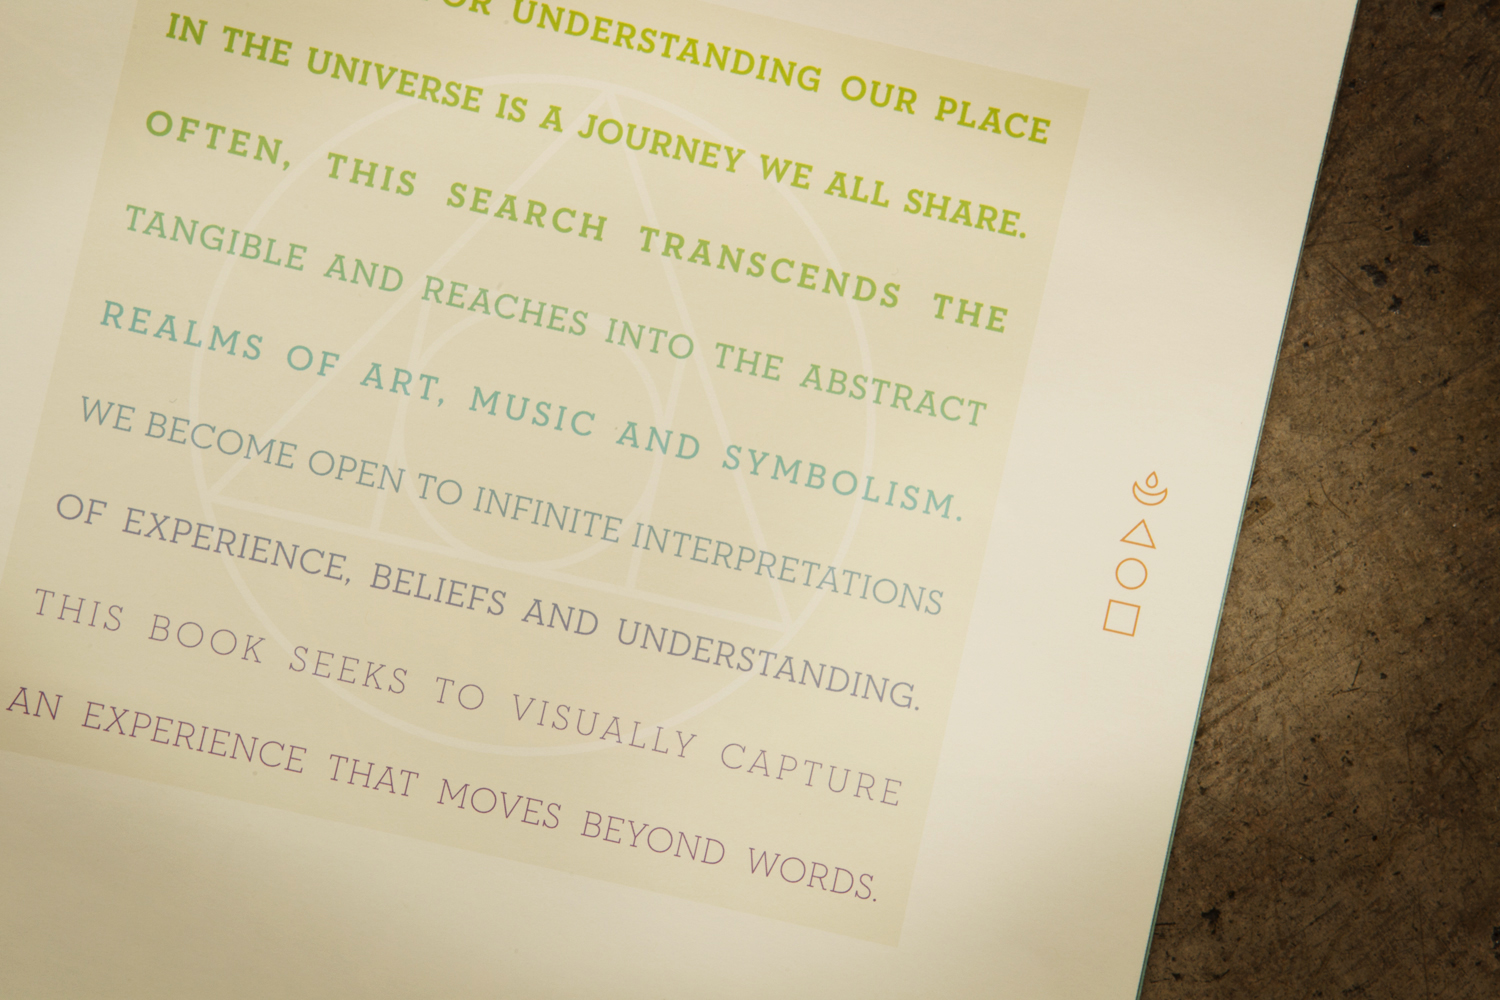 OR UNDERSTANDING OUR PLACE
IN THE UNIVERSE IS A JOURNEY WE ALL SHARE.
OFTEN, THIS SEARCH TRANSCENDS THE
TANGIBLE AND REACHES INTO THE ABSTRACT
REALMS OF ART, MUSIC AND SYMBOLISM.
WE BECOME OPEN TO INFINITE INTERPRETATIONS
OF EXPERIENCE, BELIEFS AND UNDERSTANDING.
THIS BOOK SEEKS TO VISUALLY CAPTURE
AN EXPERIENCE THAT MOVES BEYOND WORDS.